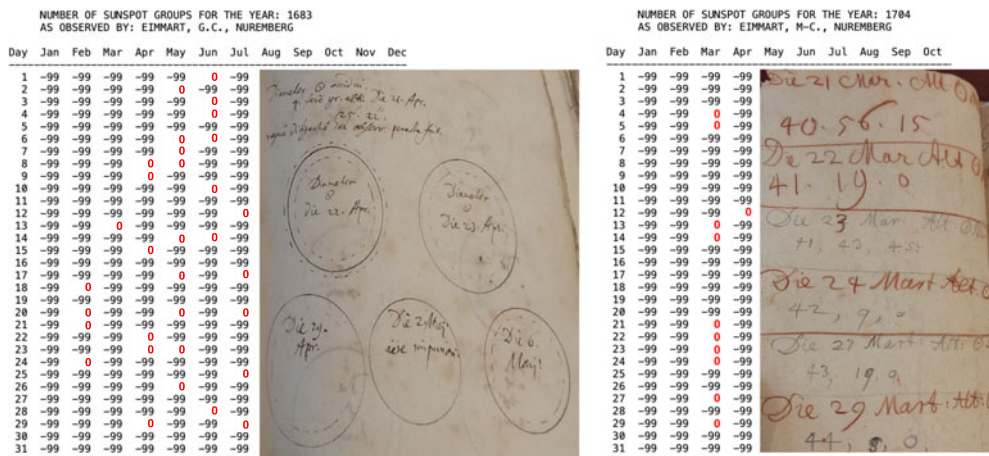 NUMBER OF SUNSPOT GROUPS FOR THE YEAR: 1683
AS OBSERVED BY: EIMMART, G.C., NUREMBERG
Day Jan Feb Mar Apr May Jun Jul Aug Sep Oct Nov Dec
1 -99 -99 -99 -99 -99 0 -99
2 -99 -99 -99 -99 0 -99 -99
3 -99 -99 -99 -99 -99 0 -99
4 -99 -99 -99 -99 -99 0 -99
5 -99 -99 -99 -99 -99 -99 -99
6 -99 -99 -99 -99 0 0 -99
7 -99 -99 -99 -99 0 -99 -99
8 -99 -99 -99 0 0 -99 -99
9 -99 -99 -99 0 -99 -99 -99
10 -99 -99 -99 -99 -99 0 -99
11 -99 -99 -99 -99 -99 -99 -99
12 -99 -99 -99 -99 -99 -99 0
13 -99 -99 0 -99 -99 -99 -99
14 -99 -99 -99 -99 0 0 -99
15 -99 -99 -99 0 -99 -99 -99
16 -99 -99 -99 -99 -99 -99 -99
17 -99 -99 -99 -99 0 -99 0
18 -99 0 -99 -99 -99 -99 -99
19 -99 -99 -99 -99 -99 -99 -99
20 -99 0 -99 -99 0 -99 0
21 -99 0 -99 -99 -99 -99 -99
22 -99 -99 -99 0 -99 -99 -99
23 -99 -99 -99 0 0 -99 -99
24 -99 0 -99 -99 -99 -99 -99
25 -99 -99 -99 -99 -99 -99 0
26 -99 -99 -99 -99 0 -99 -99
27 -99 -99 -99 -99 -99 -99 -99
28 -99 -99 -99 -99 -99 0 -99
29 -99 -99 -99 0 -99 -99 0
30 -99 -99 -99 -99 -99 -99 -99
31 -99 -99 -99 -99 -99 -99 -99
Diameter
Die 21. Apr.
Diameter
die 22. Apr.
Diameter
Die 23. Apr.
Die 29.
Apr.
Die 2 Maij.
Die 6.
Maij:
NUMBER OF SUNSPOT GROUPS FOR THE YEAR: 1704
AS OBSERVED BY: EIMMART, M-C., NUREMBERG
Day Jan Feb Mar Apr May Jun Jul Aug Sep Oct
1 -99 -99 -99 -99
2 -99 -99 -99 -99
3 -99 -99 -99 -99
4 -99 -99 0 -99
5 -99 -99 0 -99
6 -99 -99 -99 -99
7 -99 -99 -99 -99
8 -99 -99 -99 -99
9 -99 -99 -99 -99
10 -99 -99 -99 -99
11 -99 -99 -99 -99
12 -99 -99 -99 0
13 -99 -99 0 -99
14 -99 -99 0 -99
15 -99 -99 -99 -99
16 -99 -99 -99 -99
17 -99 -99 -99 -99
18 -99 -99 -99 -99
19 -99 -99 -99 -99
20 -99 -99 -99 -99
21 -99 -99 0 -99
22 -99 -99 0 -99
23 -99 -99 0 -99
24 -99 -99 0 -99
25 -99 -99 -99 -99
26 -99 -99 -99 -99
27 -99 -99 0 -99
28 -99 -99 -99 -99
29 -99 -99 0 -99
30 -99 -99 -99 -99
31 -99 -99 -99 -99
Die 21 Mar. Alt
40. 56. 15
Die 22 Mar Alt
41. 19. 0
Die 23 Mar. Alt.
41, 43, 45.
Die 24 Mart Alt
42, 9, 0
Die 27 Mart. Alt:
43, 19. 0
Die 29 Mart. Alt:
44, 5, 0.